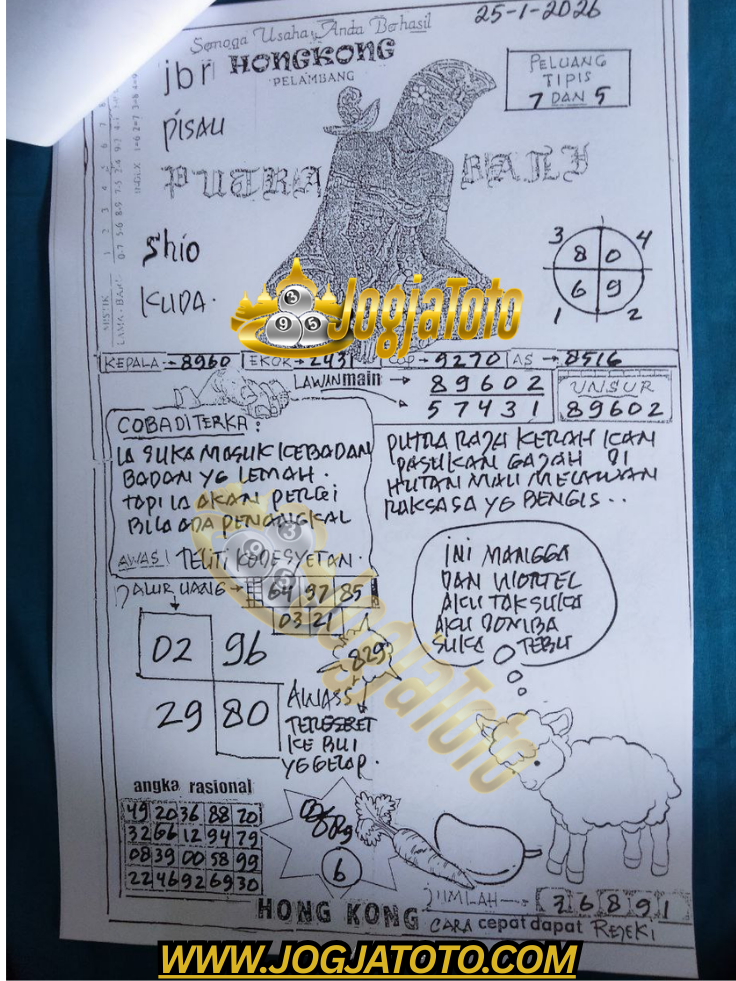 25-1-2026
Semoga Usaha Anda Berhasil
HONGKONG
PELAMBANG
jbr
PISAU
PUTRA BALI
Shio
KUDA.
PELUANG
TIPIS
7 DAN 5
3 4
8 0
6 9
1 2
JogjaToto
KEPALA → 8960 EKOR → 2431 COP → 9270 AS → 8516
LAWAN main → 89602
57431
UNSUR
89602
COBA DITERKA :
IA SUKA MASUK KEBADAN
BADAN YG LEMAH.
TAPI IA AKAN PERGI
BILA ADA PENANGKAL
AWAS! TELITI KEDESYETAN.
PUTRA RAJA KERAH KAN
PASUKAN GAJAH DI
HUTAN MAU MELAWAN
RAKSASA YG BENGIS..
INI MANGGA
DAN WORTEL
AKU TAK SUKA
AKU DOMBA
SUKA TEBU
JALUR UANG → 64 97 85
03 21
02 96
29 80
829
AWASS
TERESERET
KE BUI
YG GELAP.
JogjaToto
angka rasional
49 20 36 88 20
32 66 12 94 79
08 39 00 58 99
22 46 92 69 30
6
JUMLAH → 3 6 8 9 1
HONG KONG CARA cepat dapat REJEKI
WWW.JOGJATOTO.COM